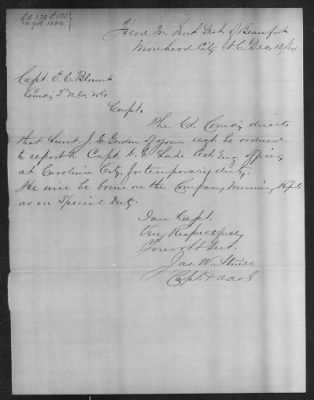 Head Qrs Sub Dist of Beaufort
Morehead City N.C. Dec 13/64
Capt. E. C.
Comdg
Capt.
The Col Comdg directs
that Lieut J. Gordon of your regt be ordered
to report to Capt. Actg Engr officer
at Carolina City for temporary duty.
He will be borne on the Company Morning Repts
as on Special Duty.
I am Capt.
Very Respectfully
Your obt Servt.
Jas. W.
Capt & a a a G